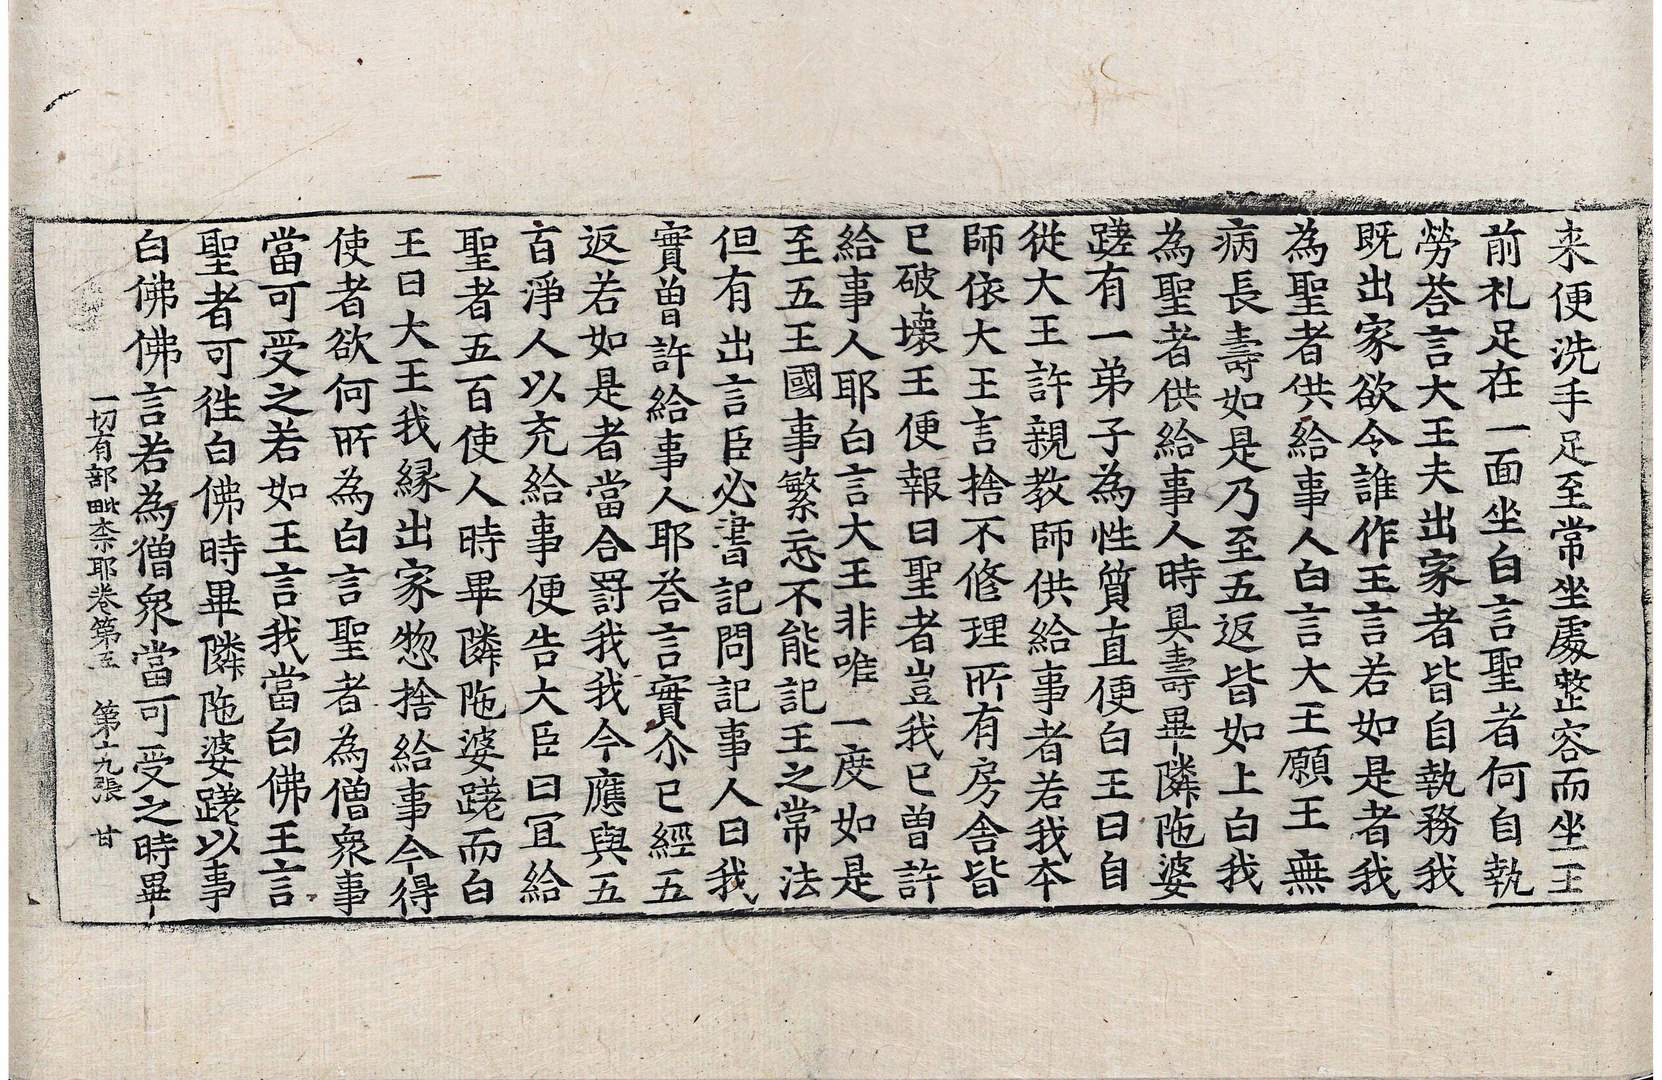 来便洗手足至常坐處整容而坐王
前礼足在一面坐白言聖者何自執
勞荅言大王夫出家者皆自執務我
既出家欲令誰作王言若如是者我
為聖者供給事人白言大王願王無
病長壽如是乃至五返皆如上白我
為聖者供給事人時具壽畢隣陁婆
蹉有一弟子為性質直便白王曰自
從大王許親教師供給事者若我本
師依大王言捨不修理所有房舍皆
已破壞王便報曰聖者豈我已曾許
給事人耶白言大王非唯一度如是
至五王國事繁忘不能記王之常法
但有出言臣必書記問記事人曰我
實曾許給事人耶荅言實尒已經五
返若如是者當合罸我我今應與五
百淨人以充給事便告大臣曰冝給
聖者五百使人時畢隣陁婆蹉而白
王曰大王我緣出家惣捨給事今得
使者欲何所為白言聖者為僧衆事
當可受之若如王言我當白佛王言
聖者可徃白佛時畢隣陁婆蹉以事
白佛佛言若為僧衆當可受之時畢
一切有部毗柰耶卷第五 第十九張 甘